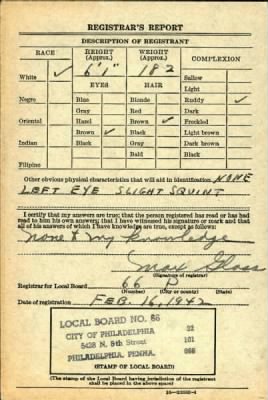 REGISTRAR'S REPORT
DESCRIPTION OF REGISTRANT
RACE HEIGHT (Approx.) WEIGHT (Approx.) COMPLEXION
White ✓ 6'1" 182 Sallow
Light
EYES HAIR
Negro Blue Blonde Ruddy ✓
Gray Red Dark
Oriental Hazel Brown ✓ Freckled
Brown ✓ Black Light brown
Indian Black Gray Dark brown
Bald Black
Filipino
Other obvious physical characteristics that will aid in identification NONE
LEFT EYE SLIGHT SQUINT
I certify that my answers are true; that the person registered has read or has had
read to him his own answers; that I have witnessed his signature or mark and that
all of his answers of which I have knowledge are true, except as follows:
None to my knowledge
Max Glass
(Signature of registrar)
Registrar for Local Board 66 P
(Number) (City or county) (State)
Date of registration FEB. 16, 1942
LOCAL BOARD NO. 66
CITY OF PHILADELPHIA 32
N. 5th Street 101
PHILADELPHIA, PENNA. 066
(STAMP OF LOCAL BOARD)
(The stamp of the Local Board having jurisdiction of the registrant
shall be placed in the above space)